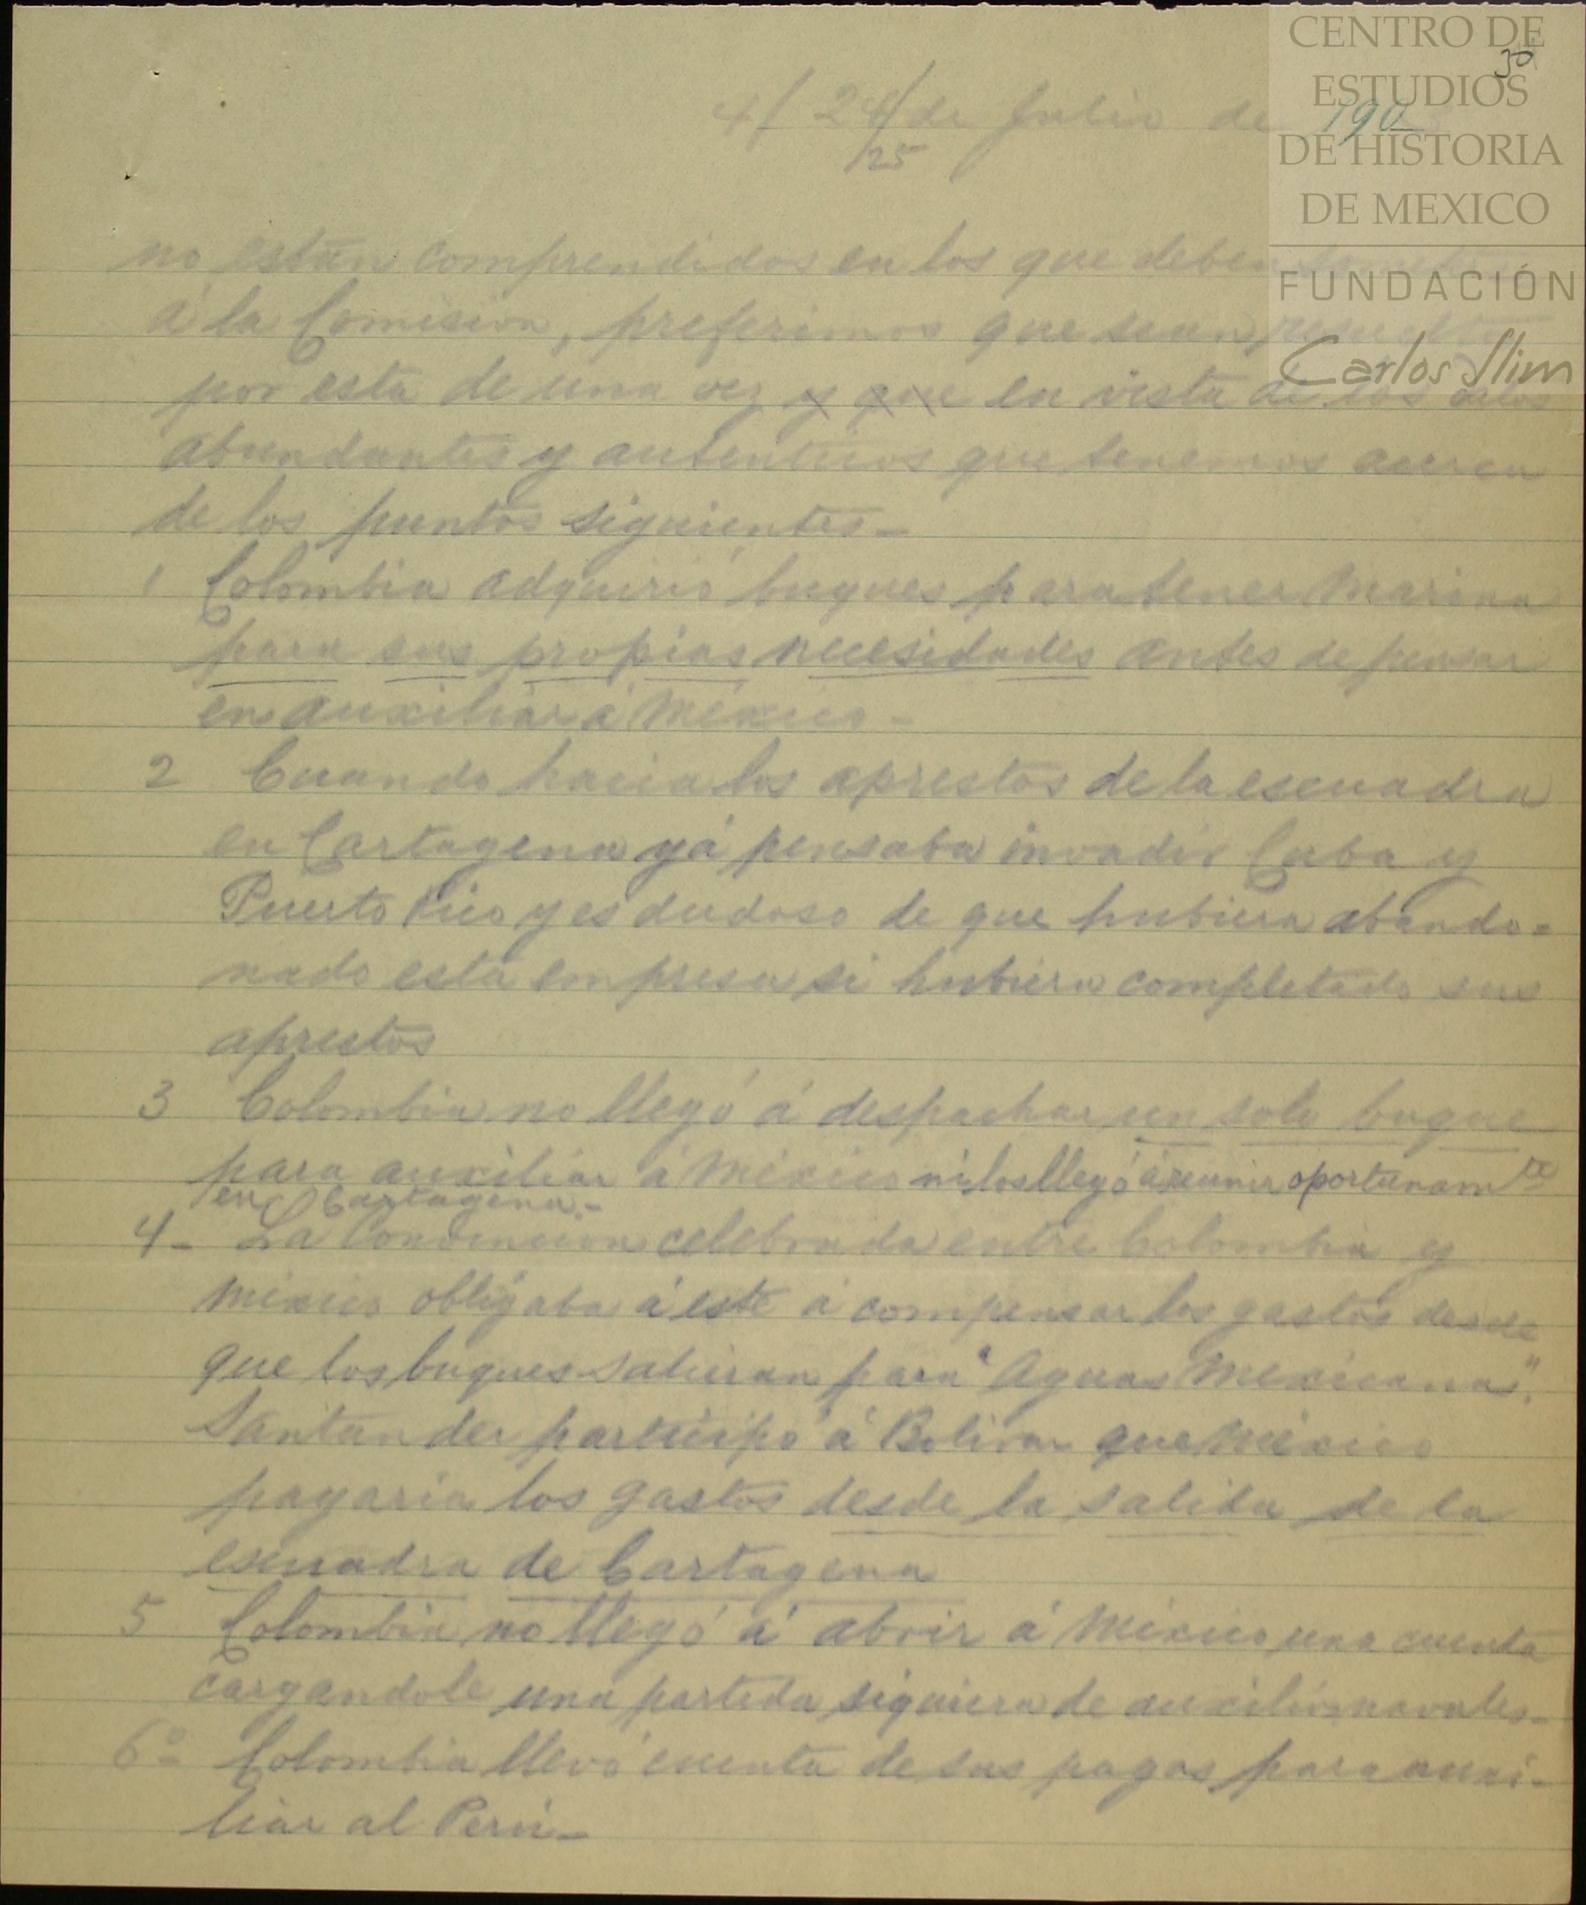 CENTRO DE
ESTUDIOS
DE HISTORIA
DE MEXICO
FUNDACIÓN
Carlos Slim
30
4/ 24/ de Julio de 190
25
no están comprendidos en los que deben
á la Comision, preferimos que sean
por esta de una vez y que en vista de los datos
abundantes y autenticos que tenemos acerca
de los puntos siguientes_
1 Colombia adquirió buques para tener Marina
para sus propias necesidades antes de pensar
en auxiliar á México_
2 Cuando hacia los aprestos de la escuadra
en Cartagena yá pensaba invadir Cuba y
Puerto Rico y es dudoso de que hubiera abando=
nado esta empresa si hubiera completado sus
aprestos
3 Colombia no llegó á despachar un solo buque
para auxiliar á México ni los llegó á reunir oportunamte
en Cartagena.-
4_ La Convencion celebrada entre Colombia y
México obligaba á este á compensar los gastos desde
que los buques salieran para "Aguas Mexicanas".
Santander participó á Bolivar que México
pagaria los gastos desde la salida de la
escuadra de Cartagena
5 Colombia no llegó á abrir á México una cuenta
cargandole una partida siquiera de auxilios navales_
6º Colombia llevó cuenta de sus pagos para auxi-
liar al Perú_